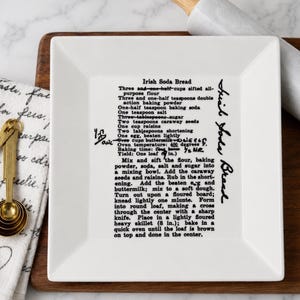 Irish Soda Bread
Three and one-half cups sifted all-
purpose flour
Three and one-half teaspoons double
action baking powder
One-half teaspoon baking soda
One teaspoon salt
Three tablespoons sugar
Two teaspoons caraway seeds
Two cup raisins
Two tablespoons shortening
One egg, beaten lightly
cups buttermilk
Oven temperature: 400 degrees F.
Baking time: One hour
Yield: One loaf in.)
Mix and sift the flour, baking
powder, soda, salt and sugar into
a mixing bowl. Add the caraway
seeds and raisins. Rub in the short-
ening. Add the beaten egg and
buttermilk; mix to a soft dough.
Turn out upon a floured board;
knead lightly one minute. Form
into round loaf, making a cross
through the center with a sharp
knife. Place in a lightly floured
heavy skillet (8 in.); bake in a
quick oven until the loaf is brown
on top and done in the center.
Irish Soda Bread